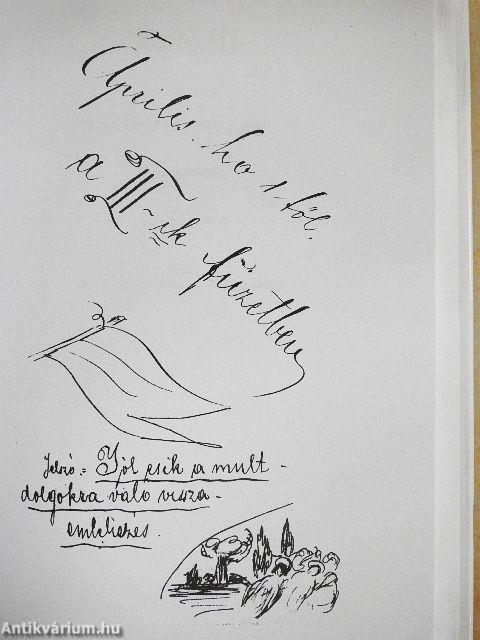 Április. ho 1-től.
a III-ik füzetben
Jelszó: Jól esik a mult-
dolgokra való vissza-
emlekezes.
Antikvárium.hu